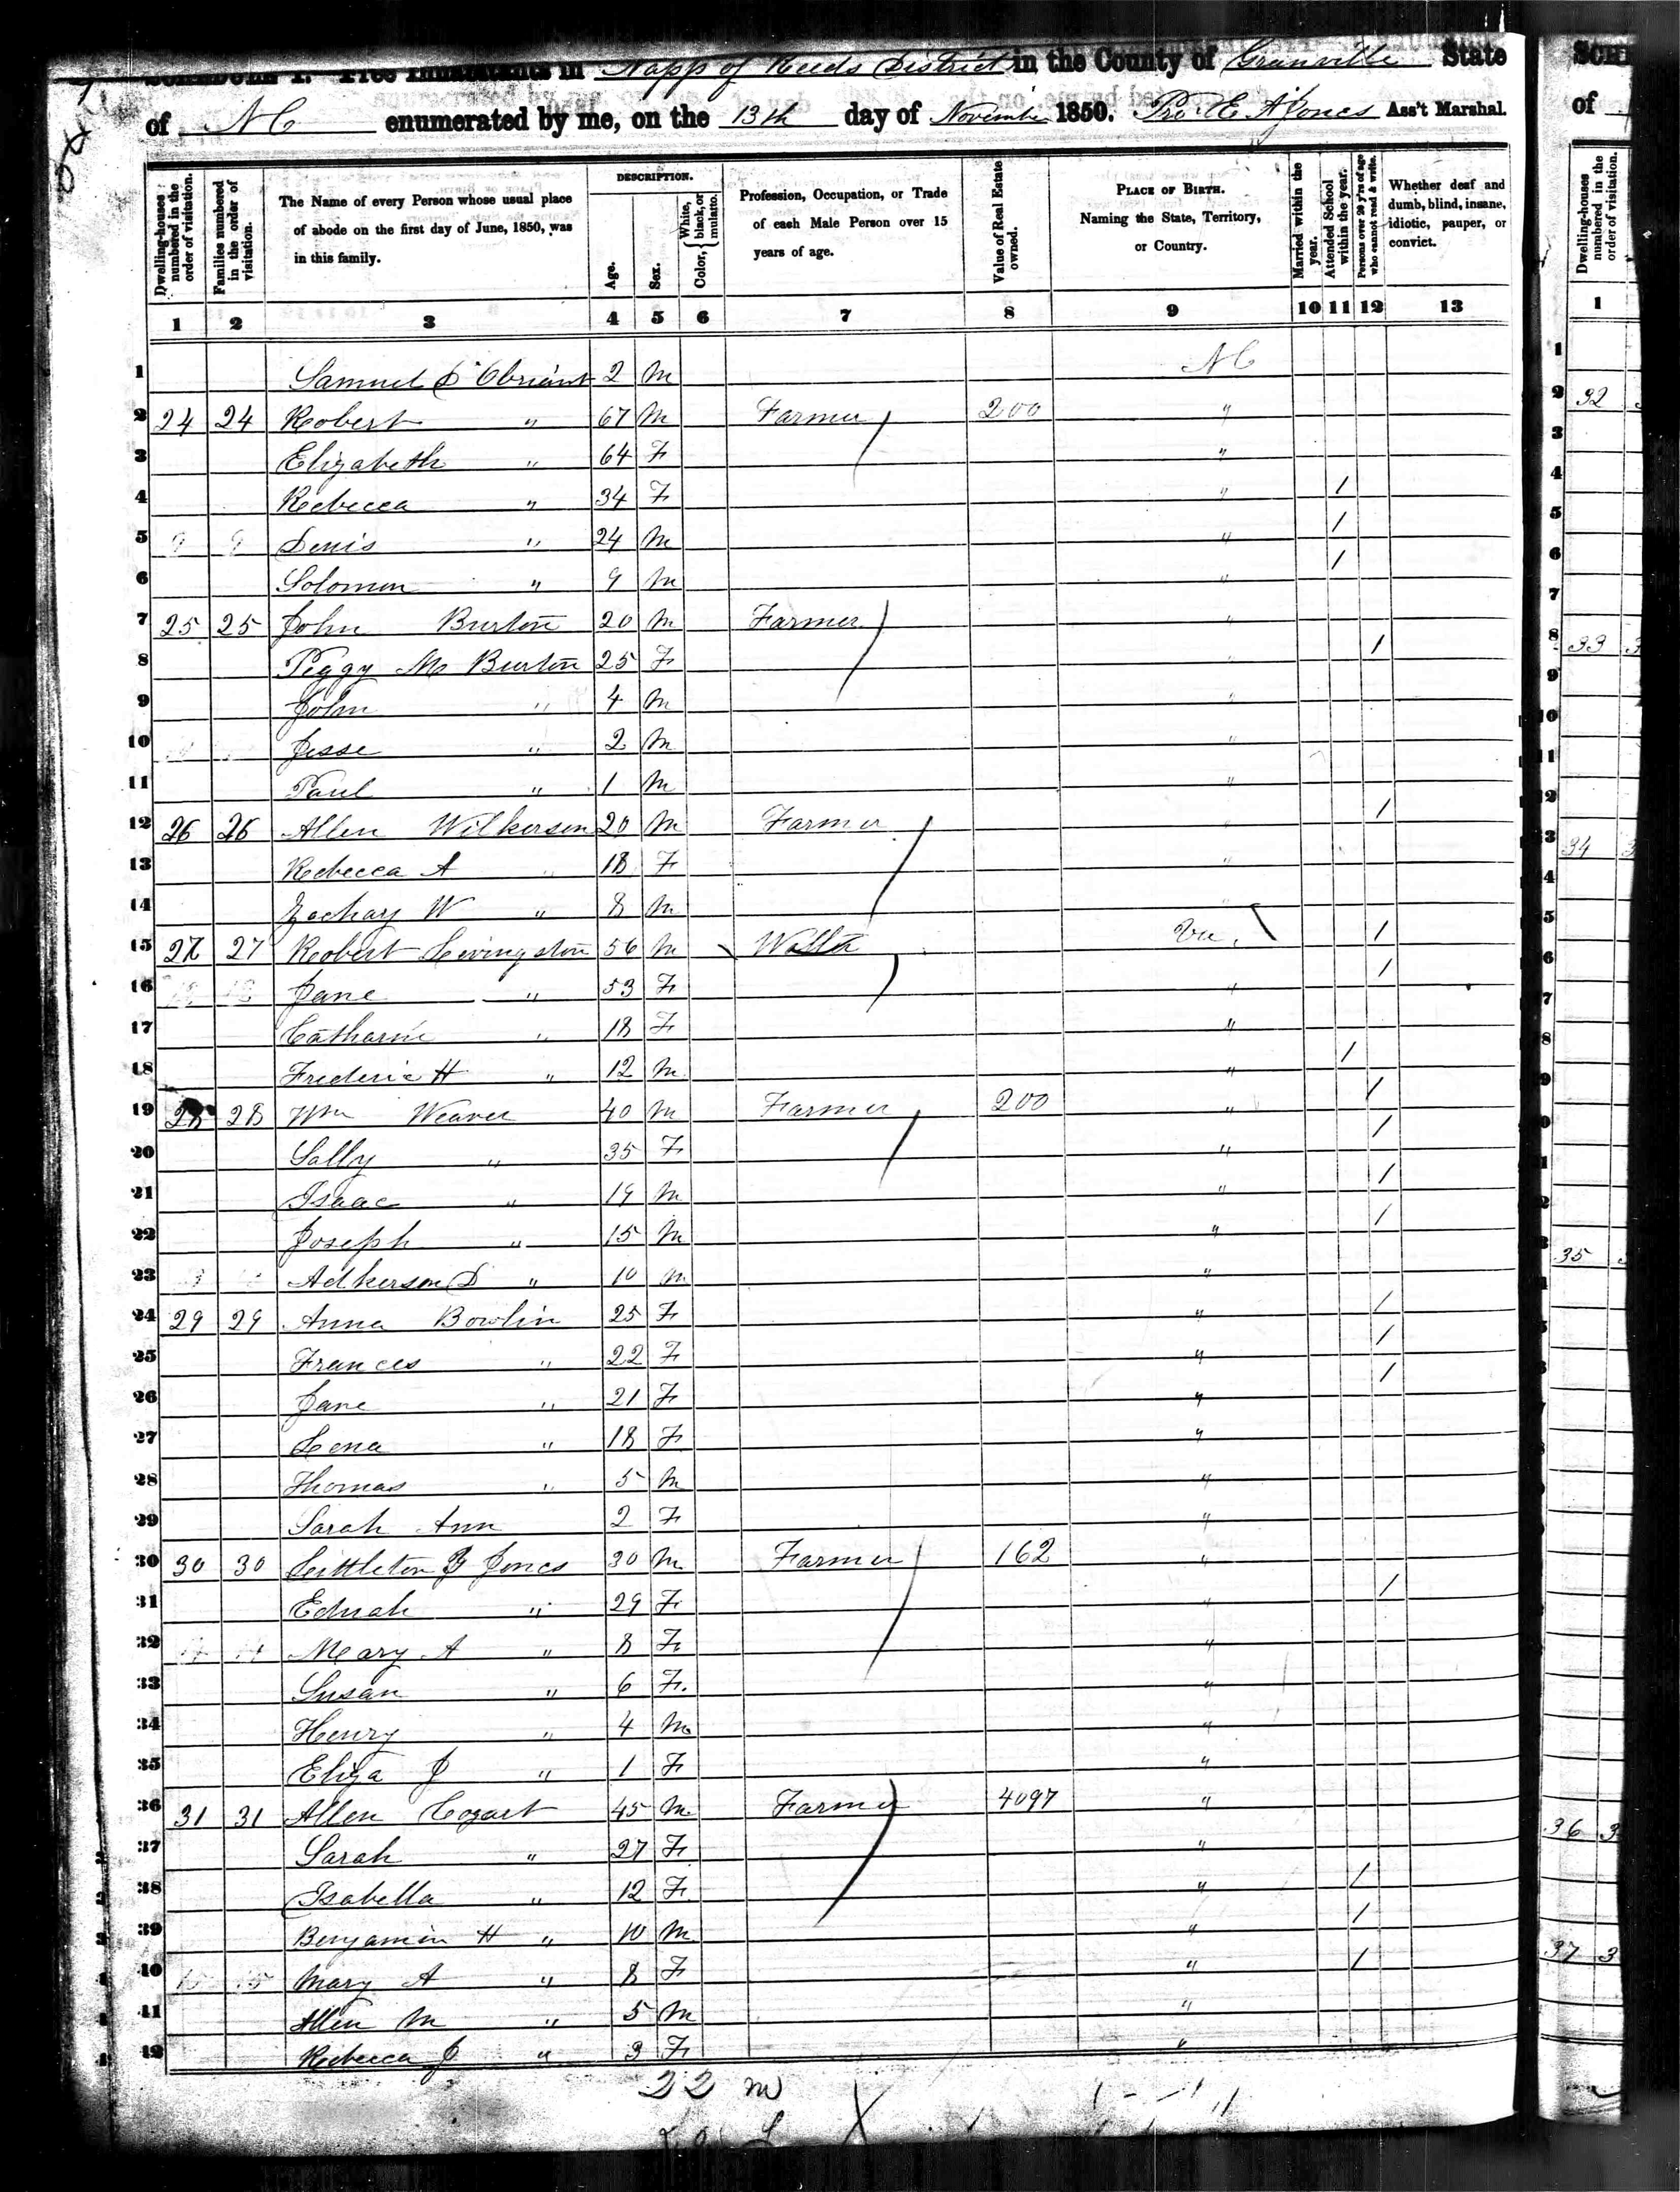 SCHEDULE I. Free Inhabitants in Napp of Reeds District in the County of Granville State
of NC enumerated by me, on the 13th day of November 1850. A Jones Ass't Marshal.
Dwelling-houses numbered in the order of visitation.
Families numbered in the order of visitation.
The Name of every Person whose usual place of abode on the first day of June, 1850, was in this family.
DESCRIPTION.
Age.
Sex.
Color, { White, black, or mulatto.
Profession, Occupation, or Trade of each Male Person over 15 years of age.
Value of Real Estate owned.
PLACE OF BIRTH. Naming the State, Territory, or Country.
Married within the year.
Attended School within the year.
Persons over 20 y'rs of age who cannot read & write.
Whether deaf and dumb, blind, insane, idiotic, pauper, or convict.
1 2 3 4 5 6 7 8 9 10 11 12 13
1 Samuel D Obriant 2 M NC
2 24 24 Robert " 67 M Farmer 200 "
3 Elizabeth " 64 F "
4 Rebecca " 34 F " /
5 Denis " 24 M " /
6 Solomon " 9 M " /
7 25 25 John Burton 20 M Farmer "
8 Peggy M Burton 25 F " /
9 John " 4 M "
10 Jesse " 2 M "
11 Paul " 1 M "
12 26 26 Allen Wilkerson 20 M Farmer " /
13 Rebecca A " 18 F "
14 Zachary W " 8 M "
15 27 27 Robert Levingston 56 M /
16 Jane " 53 F " /
17 Catharine " 18 F "
18 Frederic H " 12 M " /
19 28 28 Wm Weaver 40 M Farmer 200 " /
20 Sally " 35 F " /
21 Isaac " 19 M " /
22 Joseph " 15 M " /
23 Adkerson D " 10 M "
24 29 29 Anna Bowlin 25 F " /
25 Frances " 22 F " /
26 Jane " 21 F " /
27 Lena " 18 F "
28 Thomas " 5 M "
29 Sarah Ann 2 F "
30 30 30 Littleton Jones 30 M Farmer 162 "
31 Ednah " 29 F " /
32 Mary A " 8 F "
33 Susan " 6 F. "
34 Henry " 4 M "
35 Eliza J " 1 F "
36 31 31 Allen Cozart 45 M Farmer 4097 "
37 Sarah " 27 F "
38 Isabella " 12 F " /
39 Benjamin H " 10 M " /
40 Mary A " 8 F " /
41 Allen M " 5 M "
42 Rebecca J " 3 F "
22 m
SCH
of
Dwelling-houses numbered in the order of visitation.
1
32
33
34
35
36 3
37 3